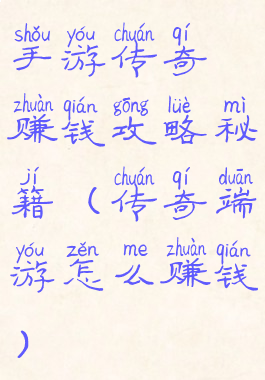 shǒu yóu chuán qí
手游传奇
zhuàn qián gōng lüè mì
赚钱攻略秘
jí chuán qí duān
籍（传奇端
yóu zěn me zhuàn qián
游怎么赚钱
）